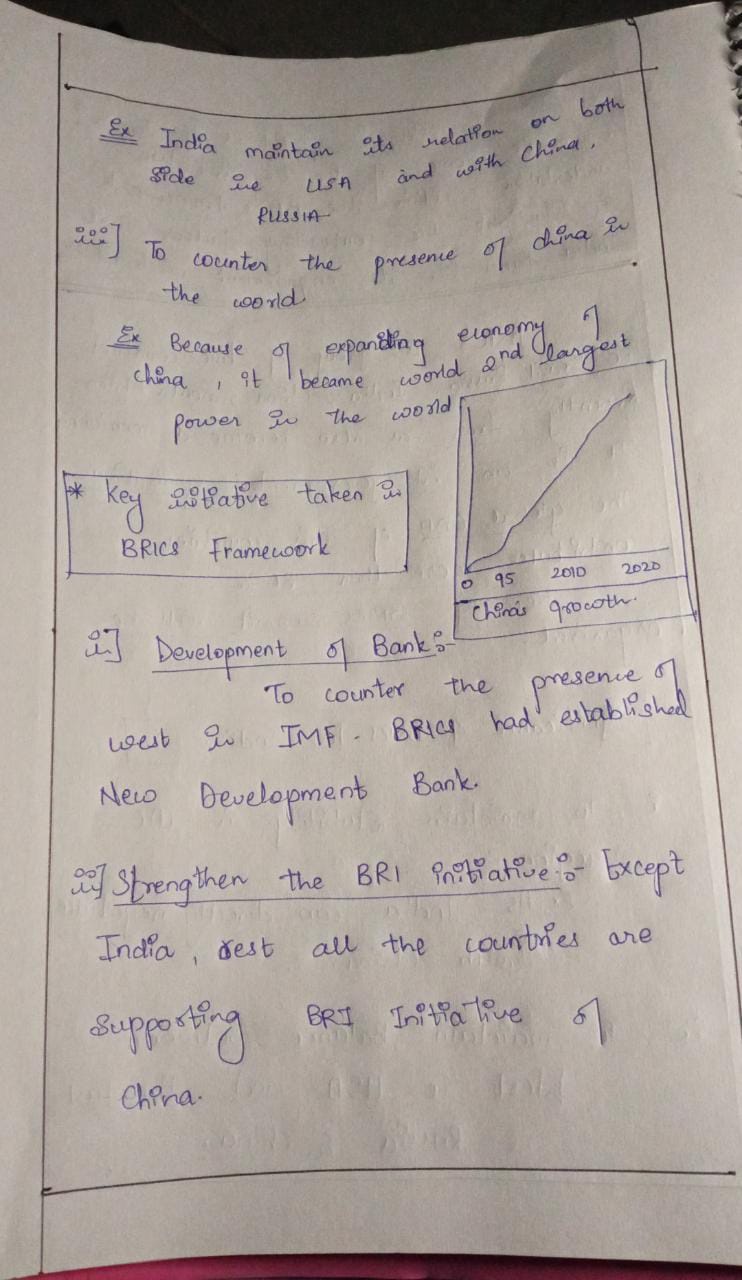 Ex India maintain its relation on both
side ie USA and with China,
RUSSIA
iii] To counter the presence of china in
the world.
Ex Because of expanding economy of
china, it became world 2nd largest
power in the world
* Key initiative taken in
BRICS Framework
0 95 2010 2020
China's growth.
i] Development of Bank:-
To counter the presence of
west in IMF. BRICS had established
New Development Bank.
ii] Strengthen the BRI initiative:- Except
India, rest all the countries are
supporting BRI Initiative of
China.